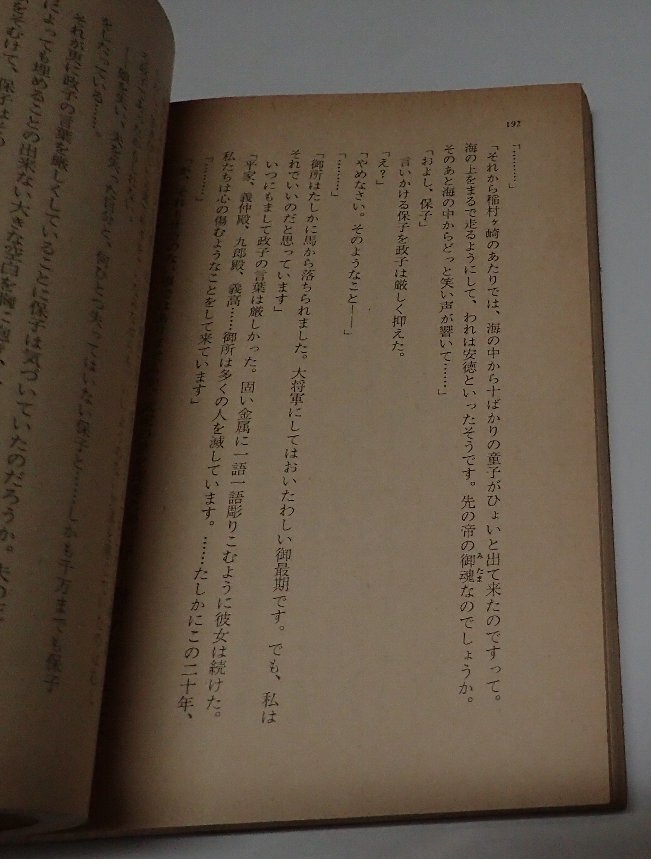 192
「………」
「それから稲村ヶ崎のあたりでは、海の中から十ばかりの童子がひょいと出て来たのですって。
海の上をまるで走るようにして、われは安徳といったそうです。先の帝の御魂なのでしょうか。
みたま
そのあと海の中からどっと笑い声が響いて……」
「およし、保子」
言いかける保子を政子は厳しく抑えた。
「え？」
「やめなさい。そのようなこと――」
「………」
「御所はたしかに馬から落ちられました。大将軍にしてはおいたわしい御最期です。でも、私は
それでいいのだと思っています」
いつにもまして政子の言葉は厳しかった。固い金属に一語一語彫りこむように彼女は続けた。
「平家、義仲殿、九郎殿、義高……御所は多くの人を滅しています。……たしかにこの二十年、
私たちは心の傷むようなことをして来ています」
「………」
をしたっている……。
それが更に政子の言葉を厳しくしていることに保子は気づいていたのだろうか。
によっても埋めることの出来ない大きな空白を胸に
をそむけて、保子は